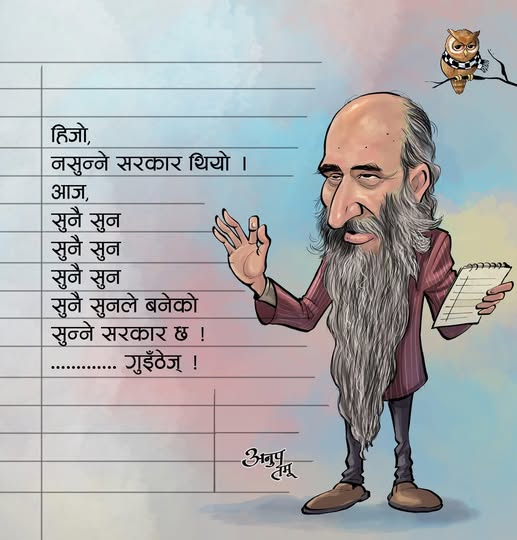 हिजो,
नसुन्ने सरकार थियो ।
आज,
सुनै सुन
सुनै सुन
सुनै सुन
सुनै सुनले बनेको
सुन्ने सरकार छ !
............. गुइँठेज् !
अनुप
तमू